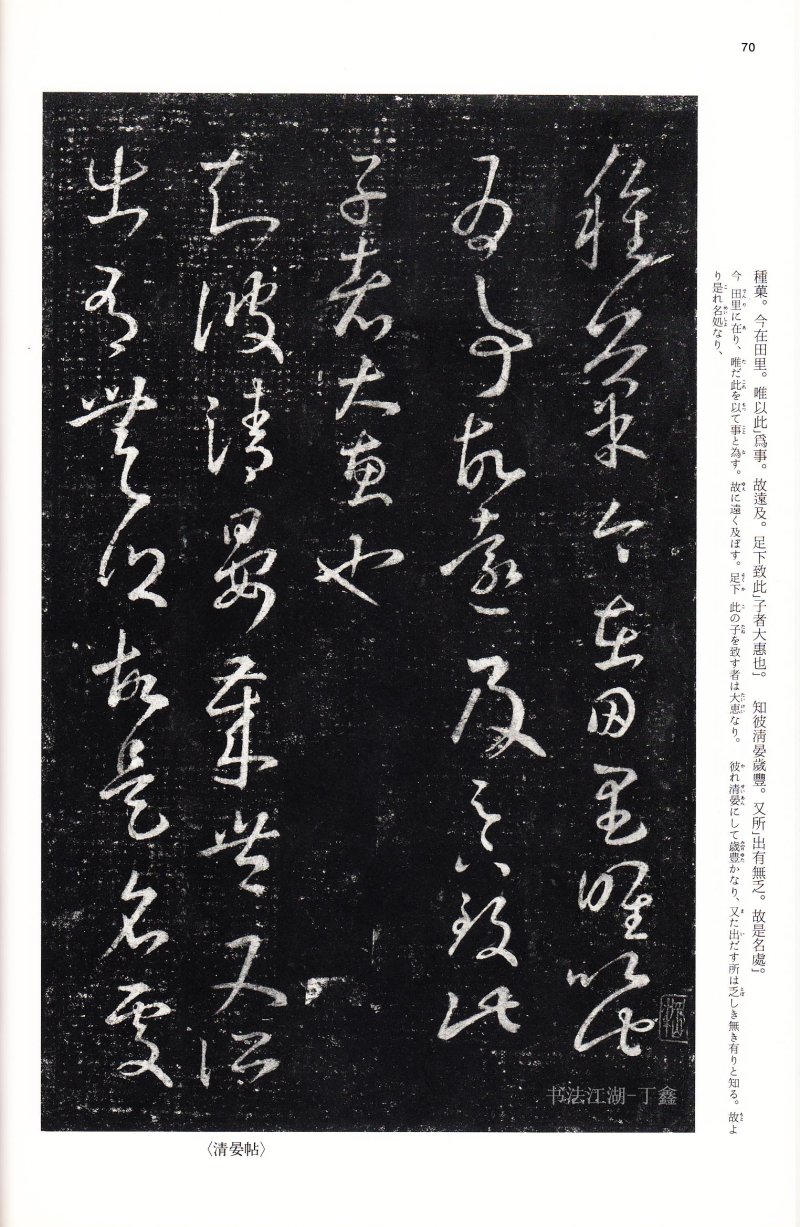 70
種菓。今在田里。唯以此」爲事。故遠及。足下致此」子者大惠也」。　知彼淸晏歲豐。又所」出有無乏。故是名處」。
今 田里に在り、唯だ此を以て事と為す。故に遠く及ぼす。足下 此の子を致す者は大恵なり。　彼れ清晏にして歳豊かなり、又た出だす所は乏しき無き有りと知る。故よ
り是れ名処なり、
種菓今在田里唯以此
爲事故遠及足下致此
子者大惠也
知彼清晏歲豐又所
出有無乏故是名處
书法江湖-丁鑫
〈清晏帖〉